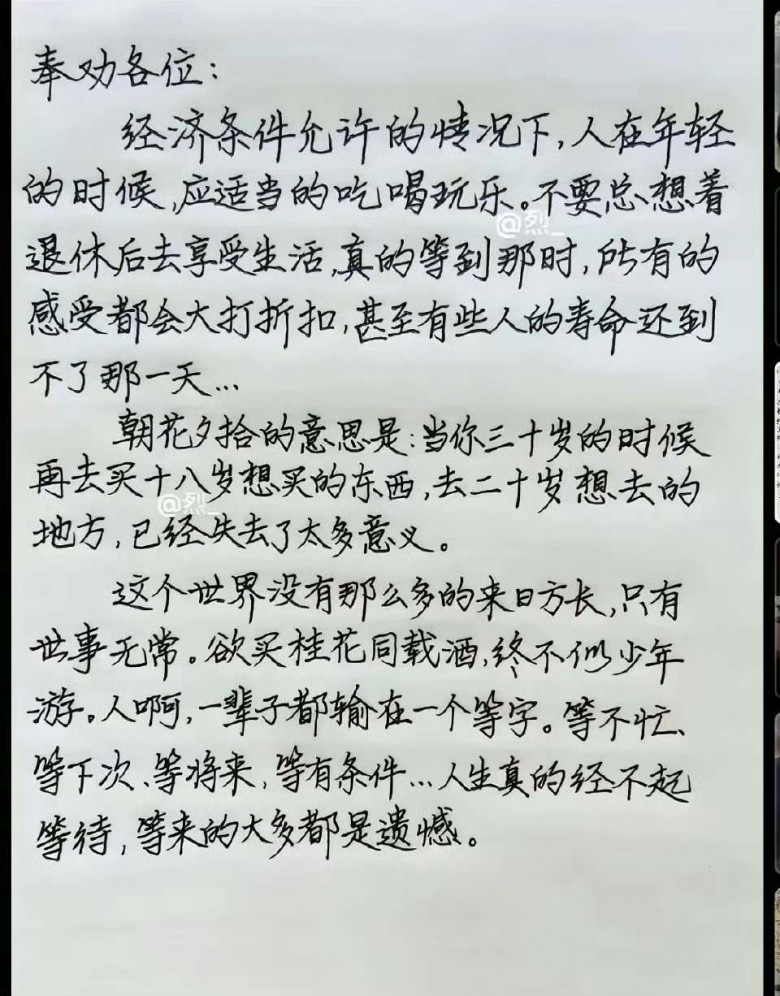 奉劝各位：
经济条件允许的情况下，人在年轻
的时候，应适当的吃喝玩乐。不要总想着
@烈_
退休后去享受生活，真的等到那时，所有的
感受都会大打折扣，甚至有些人的寿命还到
不了那一天...
朝花夕拾的意思是：当你三十岁的时候
再去买十八岁想买的东西，去二十岁想去的
@烈_
地方，已经失去了太多意义。
这个世界没有那么多的来日方长，只有
世事无常。欲买桂花同载酒，终不似少年
游。人啊，一辈子都输在一个等字。等不忙、
等下次、等将来，等有条件...人生真的经不起
等待，等来的大多都是遗憾。